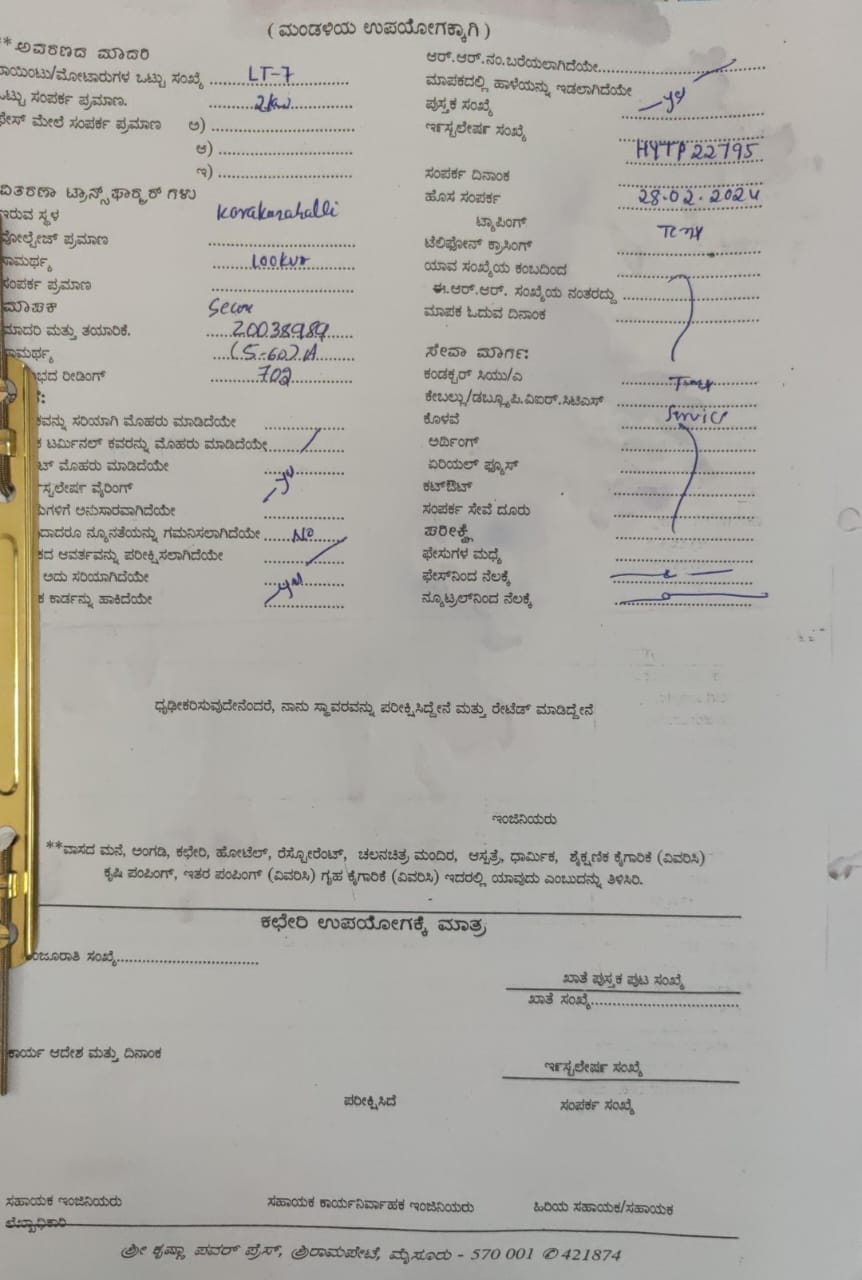 ( ಮಂಡಳಿಯ ಉಪಯೋಗಕ್ಕಾಗಿ )
**ಅವರಣದ ಮಾದರಿ
ಾಯಿಂಟು/ಮೋಟಾರುಗಳ ಒಟ್ಟು ಸಂಖ್ಯೆ LT-7
ಒಟ್ಟು ಸಂಪರ್ಕ ಪ್ರಮಾಣ. 2kw
ಫೇಸ್ ಮೇಲೆ ಸಂಪರ್ಕ ಪ್ರಮಾಣ ಅ)
ಆ)
ಇ)
ವಿತರಣಾ ಟ್ರಾನ್ಸ್‌ಫಾರ್‍ಮರ್ ಗಳು
ಇರುವ ಸ್ಥಳ
ವೋಲ್ಟೇಜ್ ಪ್ರಮಾಣ
ಸಾಮರ್ಥ್ಯ 100kva
ಸಂಪರ್ಕ ಪ್ರಮಾಣ
ಮಾಪಕ Secure
ಮಾದರಿ ಮತ್ತು ತಯಾರಿಕೆ. 20038989
ಸಾಮರ್ಥ್ಯ (5-60)A
ಭದ ರೀಡಿಂಗ್ 702
ಕವನ್ನು ಸರಿಯಾಗಿ ಮೊಹರು ಮಾಡಿದೆಯೇ
ಕ ಟರ್ಮಿನಲ್ ಕವರನ್ನು ಮೊಹರು ಮಾಡಿದೆಯೇ
ಟ್ ಮೊಹರು ಮಾಡಿದೆಯೇ yes
ಸ್ಟಲೇಷನ್ ವೈರಿಂಗ್
ಮಗಳಿಗೆ ಅನುಸಾರವಾಗಿದೆಯೇ
ದಾದರೂ ನ್ಯೂನತೆಯನ್ನು ಗಮನಿಸಲಾಗಿದೆಯೇ No
ಕದ ಆವರ್ತವನ್ನು ಪರೀಕ್ಷಿಸಲಾಗಿದೆಯೇ
ಅದು ಸರಿಯಾಗಿದೆಯೇ yes
ಕ ಕಾರ್ಡನ್ನು ಹಾಕಿದೆಯೇ
ಆರ್.ಆರ್.ನಂ.ಬರೆಯಲಾಗಿದೆಯೇ
ಮಾಪಕದಲ್ಲಿ ಹಾಳೆಯನ್ನು ಇಡಲಾಗಿದೆಯೇ yes
ಪುಸ್ತಕ ಸಂಖ್ಯೆ
ಇನ್‌ಸ್ಟಲೇಷನ್ ಸಂಖ್ಯೆ HYTP22795
ಸಂಪರ್ಕ ದಿನಾಂಕ
ಹೊಸ ಸಂಪರ್ಕ 28.02.2024
ಟ್ಯಾಪಿಂಗ್
ಟೆಲಿಫೋನ್ ಕ್ರಾಸಿಂಗ್
ಯಾವ ಸಂಖ್ಯೆಯ ಕಂಬದಿಂದ
ಈ.ಆರ್.ಆರ್. ಸಂಖ್ಯೆಯ ನಂತರದ್ದು
ಮಾಪಕ ಓದುವ ದಿನಾಂಕ
ಸೇವಾ ಮಾರ್ಗ:
ಕಂಡಕ್ಟರ್ ಸಿಯು/ಎ
ಕೇಬಲ್ಲು/ಡಬ್ಲ್ಯೂ.ಪಿ.ವಿಐಆರ್.ಸಿಟಿಎಸ್
ಕೊಳವೆ Service
ಅರ್ಥಿಂಗ್
ಏರಿಯಲ್ ಫ್ಯೂಸ್
ಕಟ್‌ಔಟ್
ಸಂಪರ್ಕ ಸೇವೆ ದೂರು
ಪರೀಕ್ಷೆ
ಫೇಸುಗಳ ಮಧ್ಯೆ
ಫೇಸ್‌ನಿಂದ ನೆಲಕ್ಕೆ
ನ್ಯೂಟ್ರಲ್‌ನಿಂದ ನೆಲಕ್ಕೆ
ಧೃಢೀಕರಿಸುವುದೇನೆಂದರೆ, ನಾನು ಸ್ಥಾವರವನ್ನು ಪರೀಕ್ಷಿಸಿದ್ದೇನೆ ಮತ್ತು ರೇಟೆಡ್ ಮಾಡಿದ್ದೇನೆ
ಇಂಜಿನಿಯರು
**ವಾಸದ ಮನೆ, ಅಂಗಡಿ, ಕಛೇರಿ, ಹೋಟೆಲ್, ರೆಸ್ಟೋರೆಂಟ್, ಚಲನಚಿತ್ರ ಮಂದಿರ, ಆಸ್ಪತ್ರೆ, ಧಾರ್ಮಿಕ, ಶೈಕ್ಷಣಿಕ ಕೈಗಾರಿಕೆ (ವಿವರಿಸಿ)
ಕೃಷಿ ಪಂಪಿಂಗ್, ಇತರ ಪಂಪಿಂಗ್ (ವಿವರಿಸಿ) ಗೃಹ ಕೈಗಾರಿಕೆ (ವಿವರಿಸಿ) ಇದರಲ್ಲಿ ಯಾವುದು ಎಂಬುದನ್ನು ತಿಳಿಸಿರಿ.
ಕಛೇರಿ ಉಪಯೋಗಕ್ಕೆ ಮಾತ್ರ
ಂಜೂರಾತಿ ಸಂಖ್ಯೆ
ಖಾತೆ ಪುಸ್ತಕ ಪುಟ ಸಂಖ್ಯೆ
ಖಾತೆ ಸಂಖ್ಯೆ
ಕಾರ್ಯ ಆದೇಶ ಮತ್ತು ದಿನಾಂಕ
ಇನ್‌ಸ್ಟಲೇಷನ್ ಸಂಖ್ಯೆ
ಪರೀಕ್ಷಿಸಿದೆ
ಸಂಪರ್ಕ ಸಂಖ್ಯೆ
ಸಹಾಯಕ ಇಂಜಿನಿಯರು ಸಹಾಯಕ ಕಾರ್ಯನಿರ್ವಾಹಕ ಇಂಜಿನಿಯರು ಹಿರಿಯ ಸಹಾಯಕ/ಸಹಾಯಕ
ಲೆಖ್ಖಾಧಿಕಾರಿ
ಶ್ರೀ ಕೃಷ್ಣಾ ಪವರ್ ಪ್ರೆಸ್, ಶ್ರೀರಾಮಪೇಟೆ, ಮೈಸೂರು - 570 001 ✆ 421874